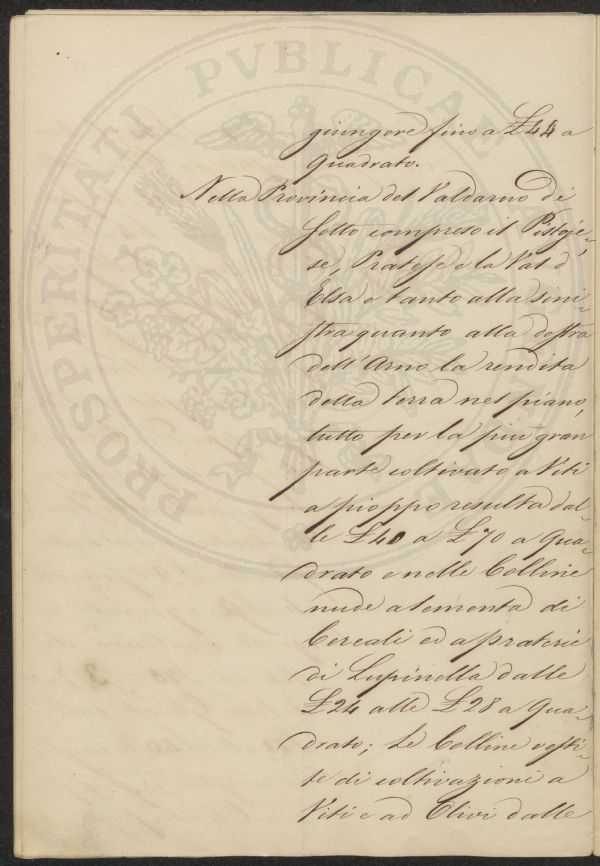 giungere fino a £44 a
quadrato.
Nella Provincia del Valdarno di
sotto compreso il Pistoje-
se, Pratese e la Val d'
Elsa e tanto alla sini-
stra quanto alla destra
dell'Arno la rendita
della terra nel piano,
tutto per la più gran
parte coltivato a Viti
a pioppo resulta dal-
le £40 a £70 a Qua-
drato e nelle Colline
nude a sementa di
Cereali ed a praterie
di Lupinella dalle
£24 alle £28 a Qua-
drato; Le Colline vesti-
te di coltivazione a
Viti e ad Olivi dalle
PROSPERITATI PVBLICAE